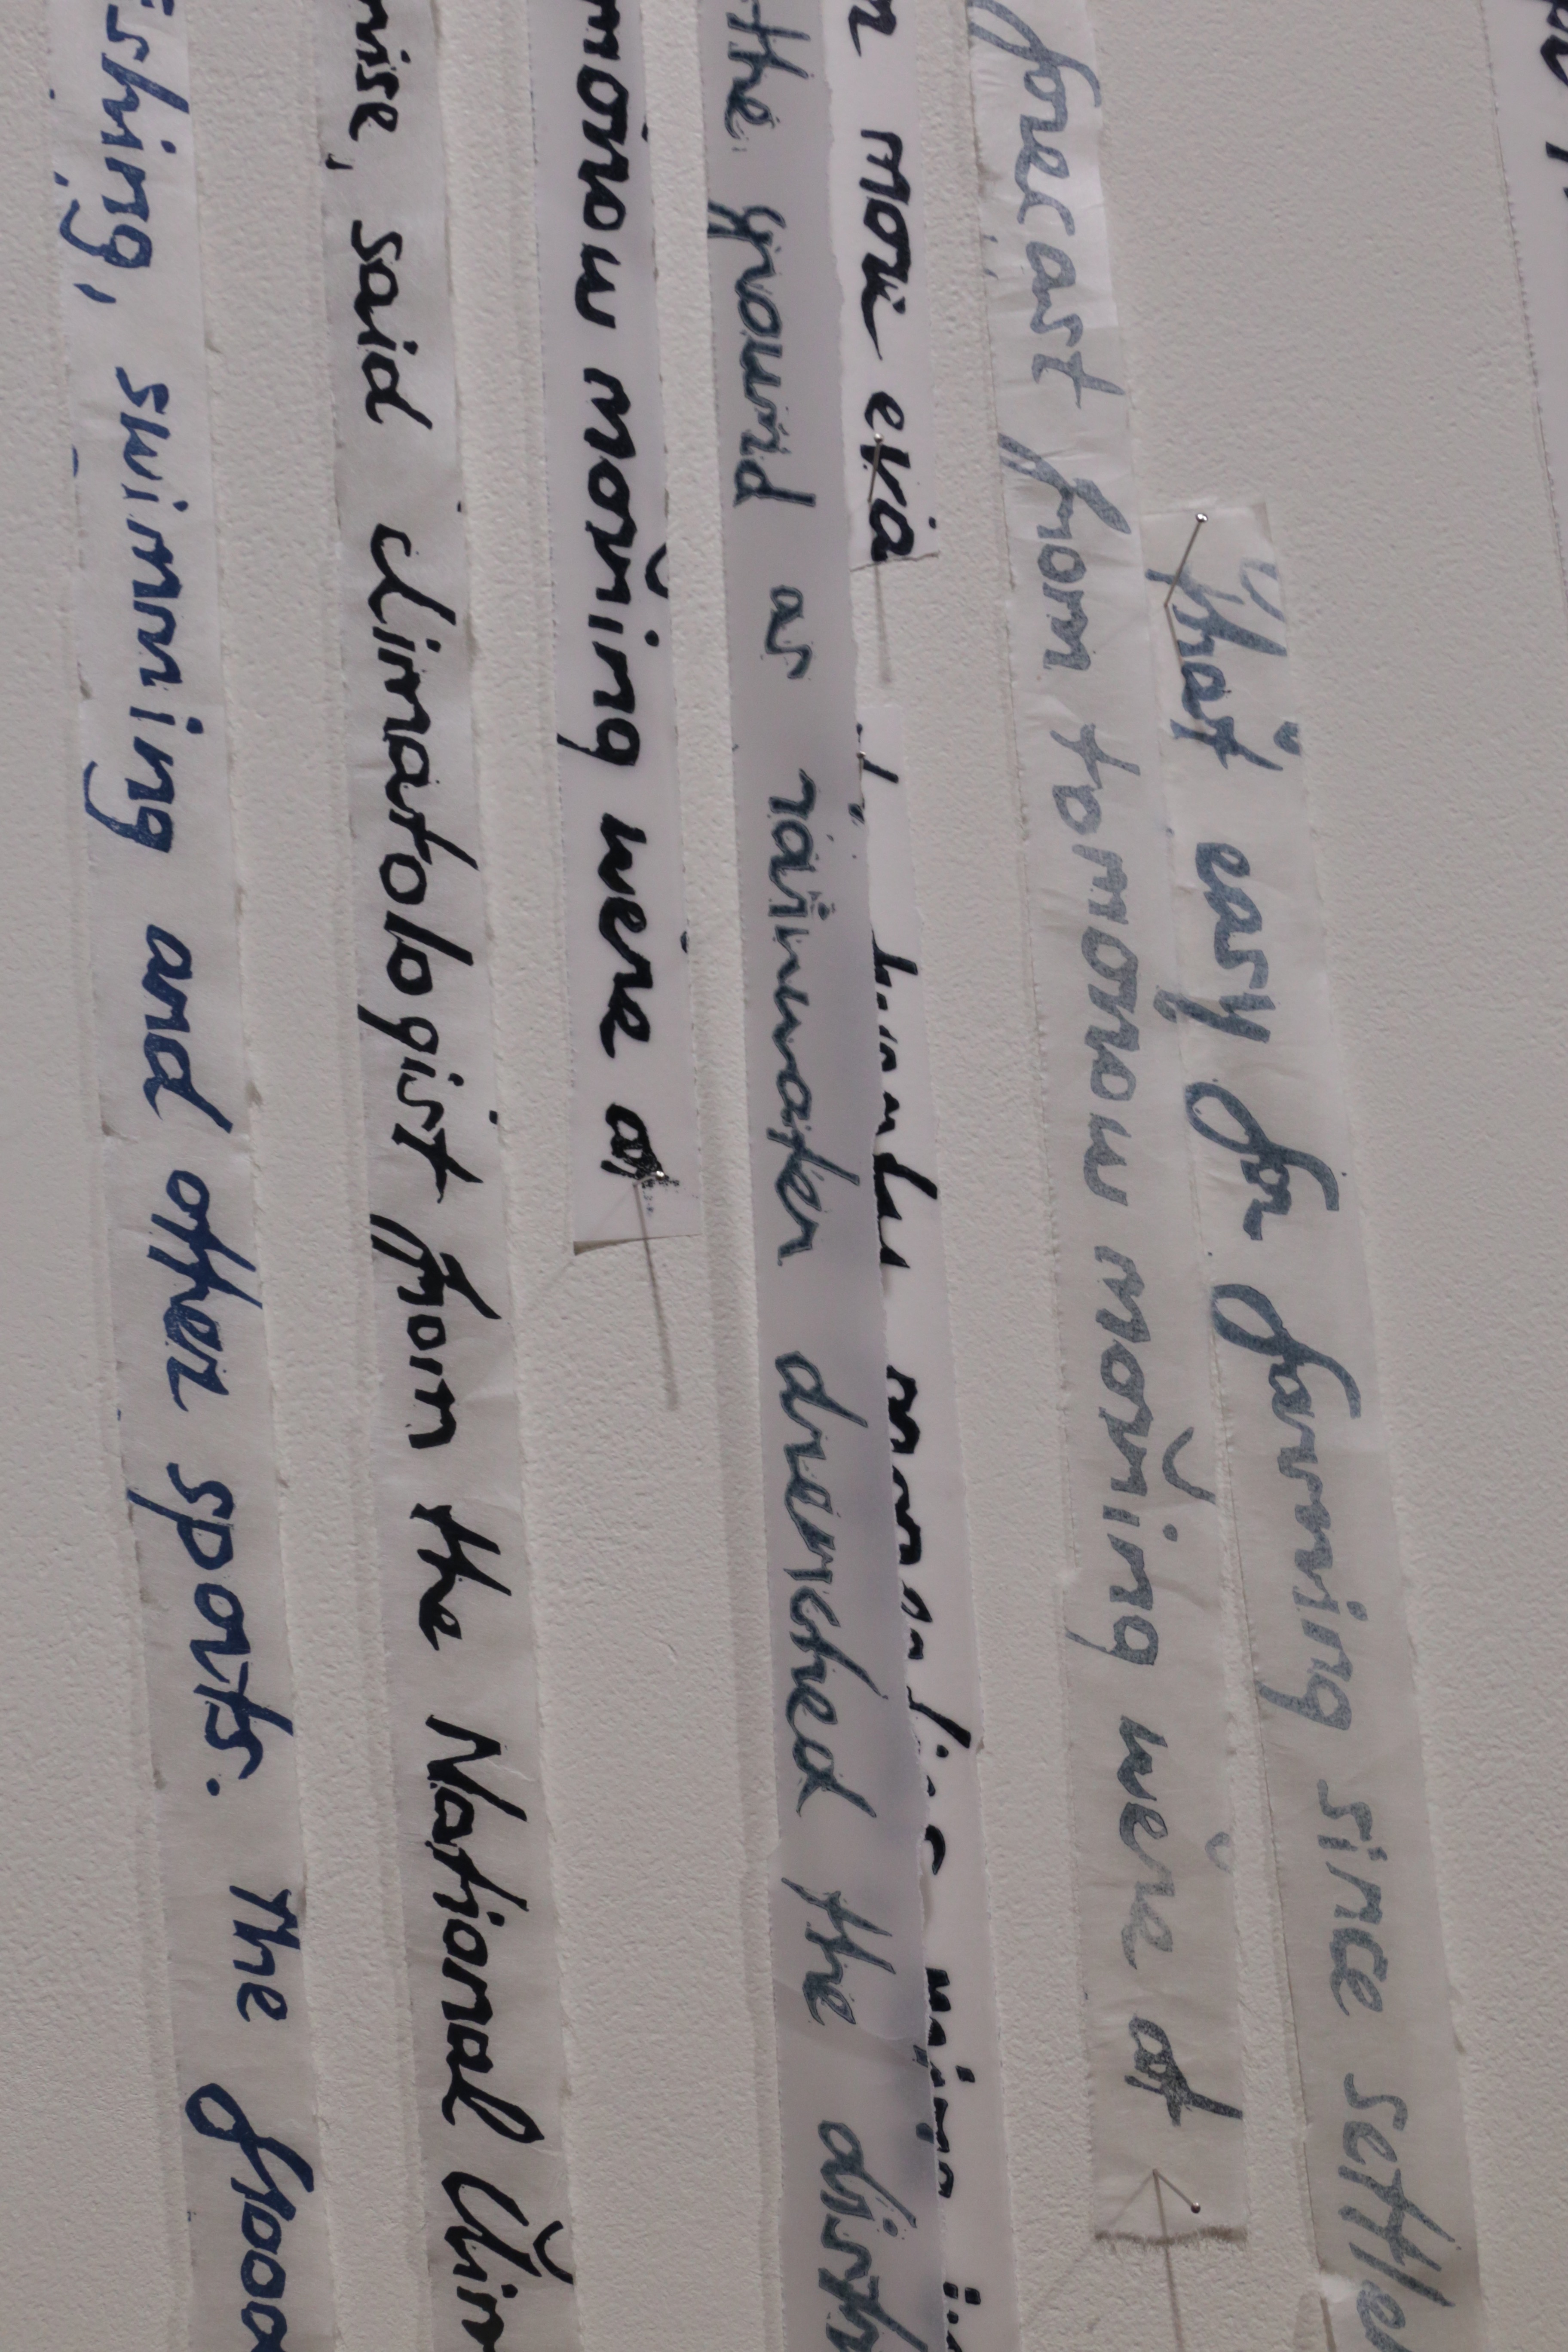 "That easy for farming since settle
forecast from tomorrow morning were at
more eva
the ground as rainwater drenched the distr
morrow morning were at
said climatologist from the National Clim
shing, swimming and other sports. The flood